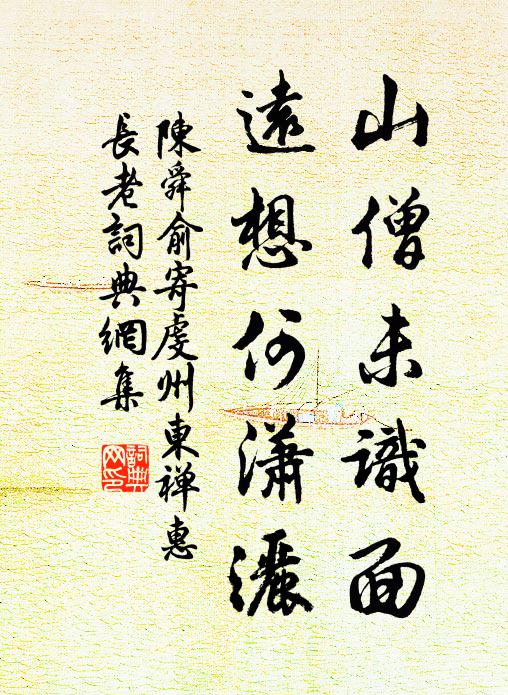 山僧未識面
遠想何瀟灑
陳舜俞寄虔州東禪惠
長老詞典網集
詞典
网印